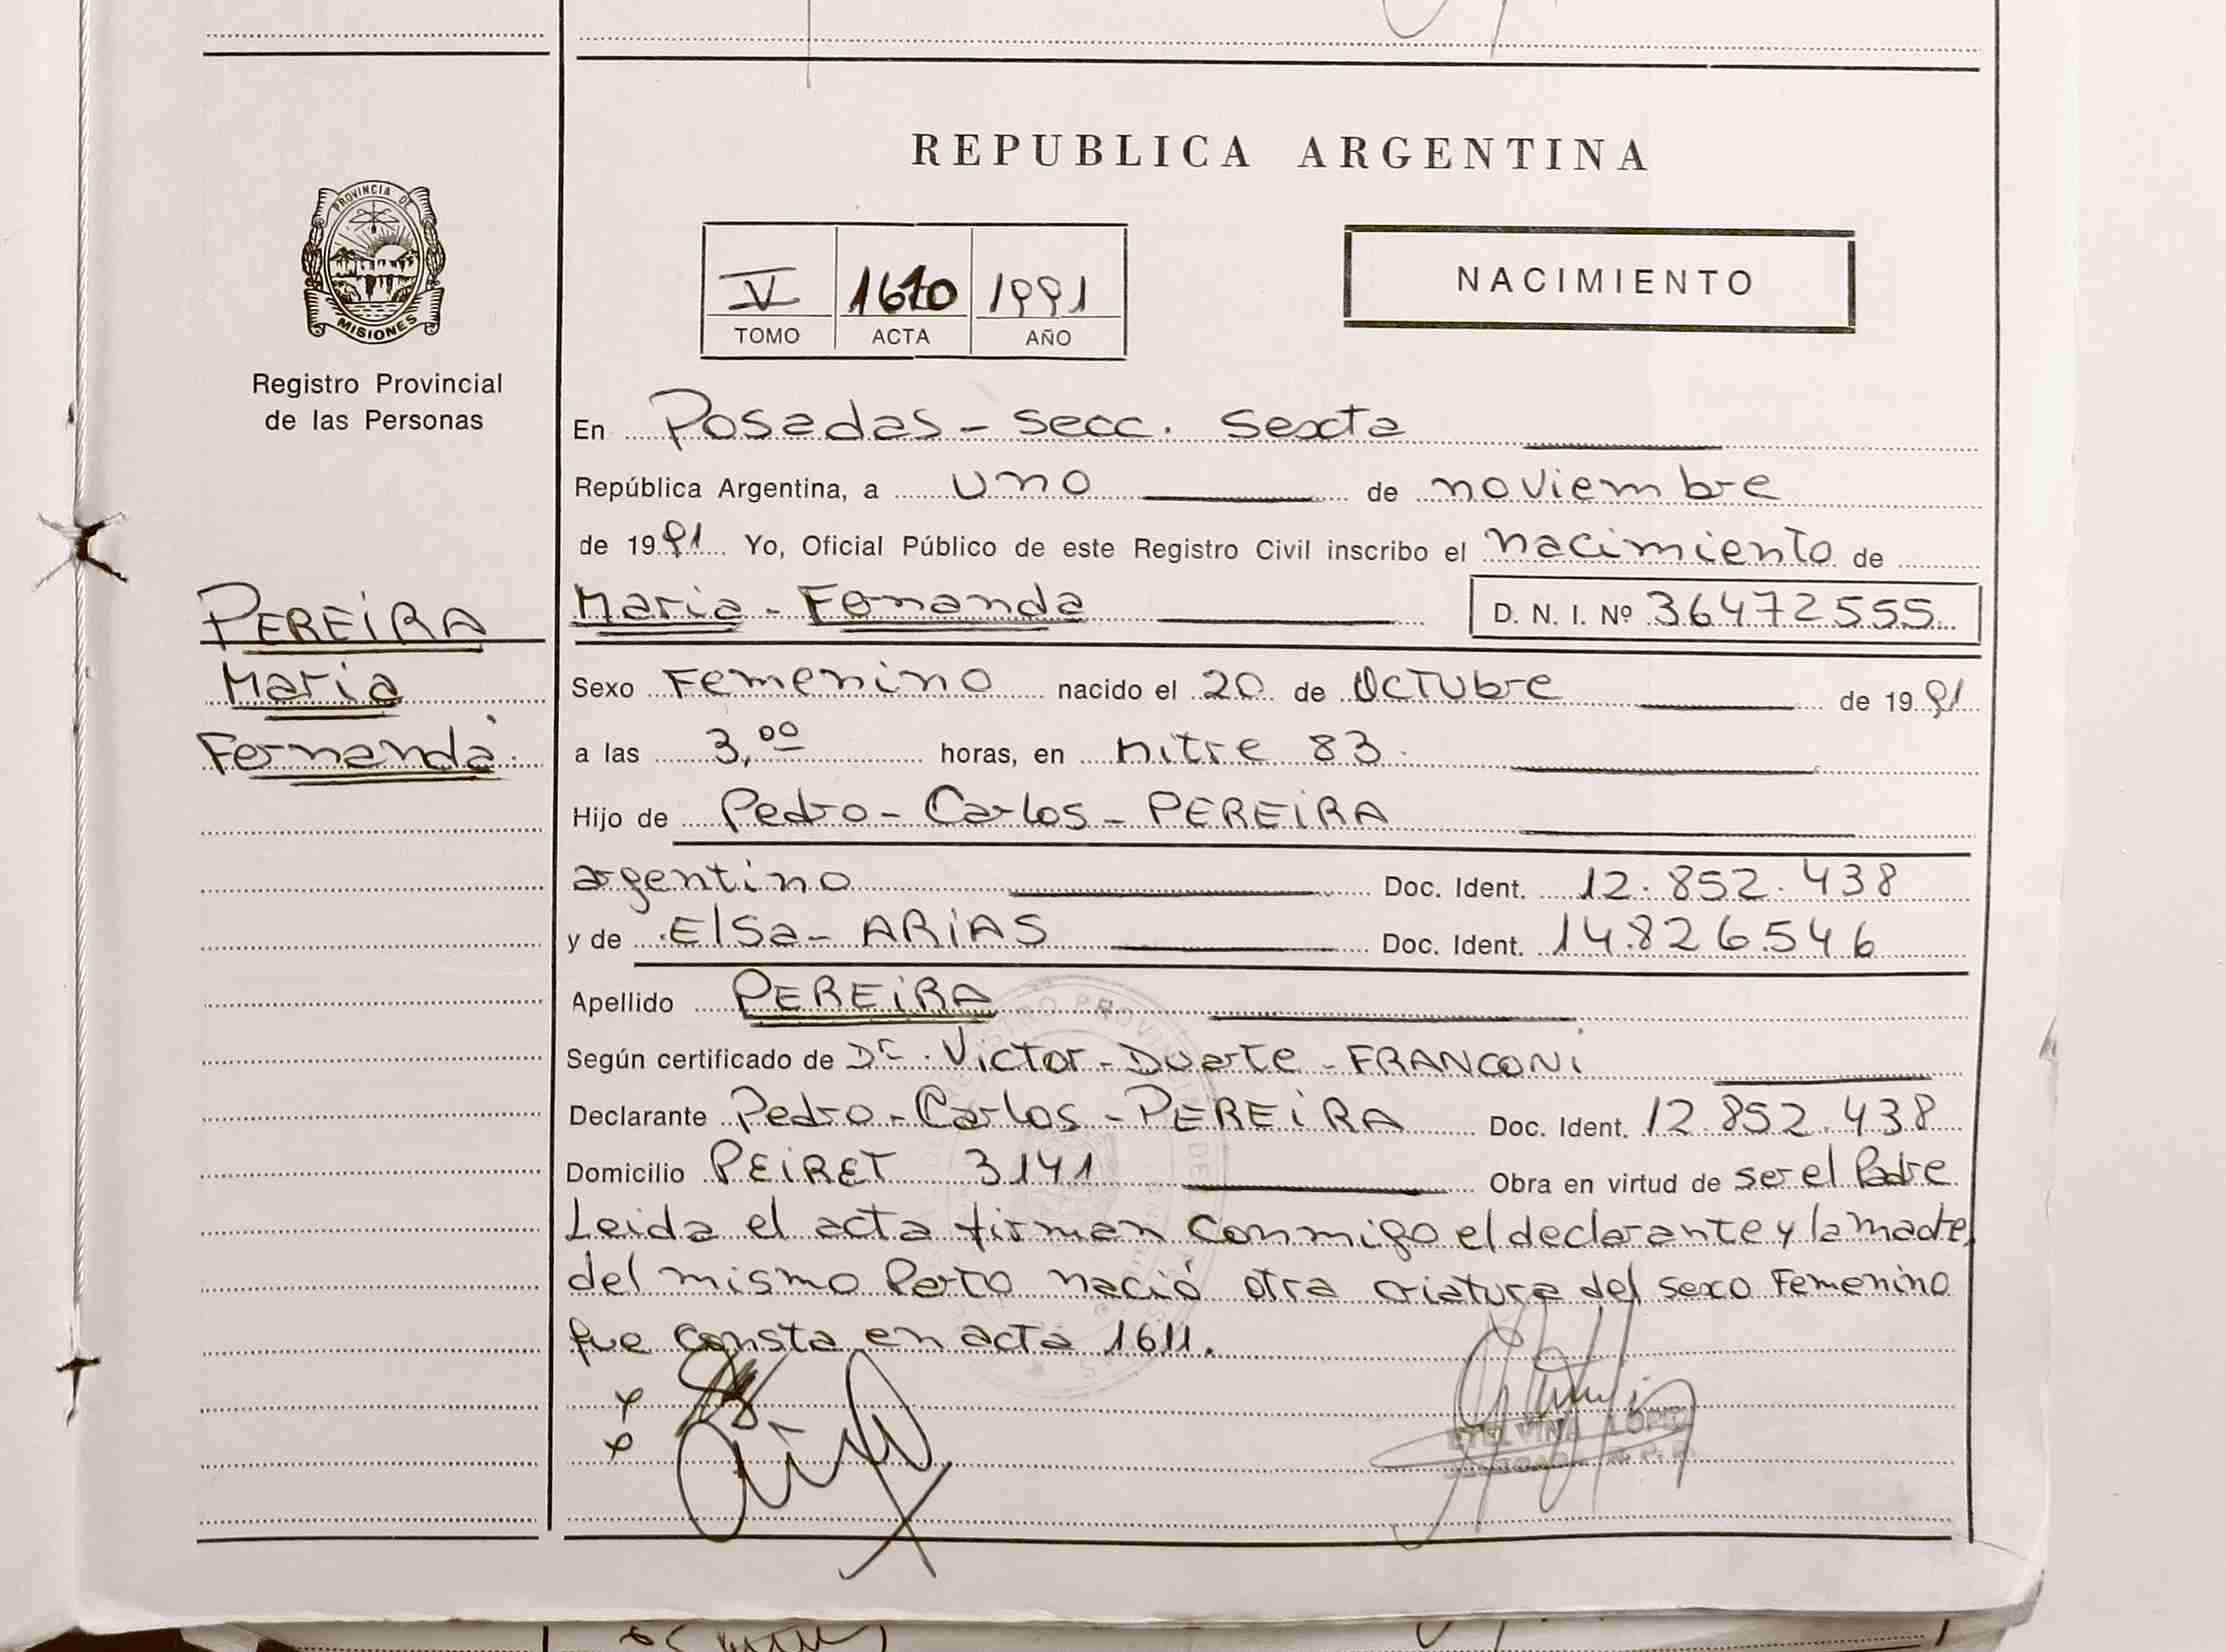 REPUBLICA ARGENTINA
PROVINCIA DE
MISIONES
Registro Provincial
de las Personas
V 1610 1991
TOMO ACTA AÑO
NACIMIENTO
En Posadas - Secc. Sexta
República Argentina, a uno de noviembre
de 1991 Yo, Oficial Público de este Registro Civil inscribo el nacimiento de
PEREIRA
Maria
Fernanda
Maria - Fernanda D. N. I. Nº 36472555
Sexo Femenino nacido el 20 de Octubre de 1991
a las 3,00 horas, en mitre 83.
Hijo de Pedro - Carlos - PEREIRA
argentino Doc. Ident. 12.852.438
y de Elsa - ARIAS Doc. Ident. 14.826.546
Apellido PEREIRA
Según certificado de Dr. Victor - Duarte - FRANCONI
Declarante Pedro - Carlos - PEREIRA Doc. Ident. 12.852.438
Domicilio PEIRET 3141 Obra en virtud de ser el Padre
Leida el acta firman conmigo el declarante y la madre,
del mismo Parto nació otra criatura del sexo Femenino
que consta en acta 1611.
ETELVINA LOPEZ